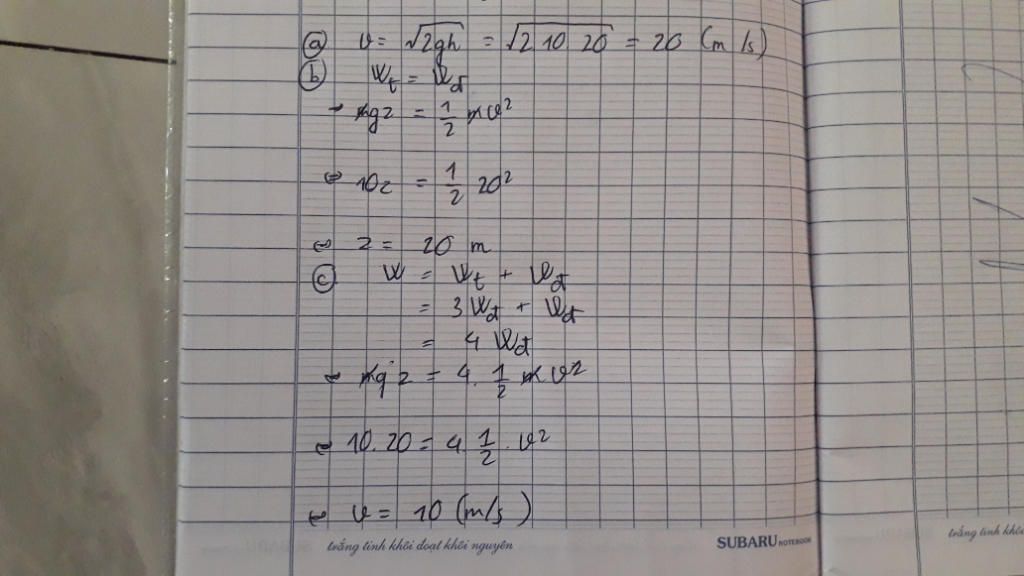 ⓐ v = √2gh = √2 10 20 = 20 (m/s)
ⓑ Wt = Wđ
⇔ mgz = 1/2 mv²
⇔ 10z = 1/2 20²
⇔ z = 20 m
ⓒ W = Wt + Wđ
= 3Wđ + Wđ
= 4 Wđ
⇔ mgz = 4. 1/2 mv²
⇔ 10.20 = 4 1/2 . v²
⇔ v = 10 (m/s)
trắng tinh khôi đoạt khôi nguyên
SUBARU NOTEBOOK
trắng tinh khôi